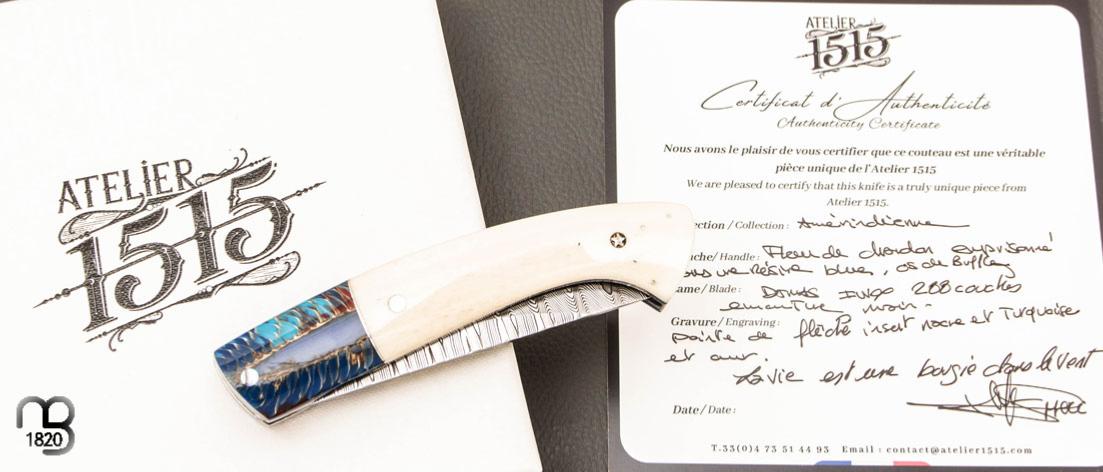 ATELIER
1515
1820
ATELIER
1515
Certificat d'Authenticité
Authenticity Certificate
Nous avons le plaisir de vous certifier que ce couteau est une véritable
pièce unique de l'Atelier 1515
We are pleased to certify that this knife is a truly unique piece from
Atelier 1515.
ection / Collection : Amérindienne
nche / Handle : Fleur de chardon emprisonné
résine bleue, os de Buffley
ame / Blade : Damas inox 288 couches
emanture noir -
Gravure / Engraving :
pointe de flèche insert nacre et Turquoise
et
La vie est une bougie dans le vent
Date / Date :
T.33(0)4 73 51 44 93 Email : contact@atelier1515.com